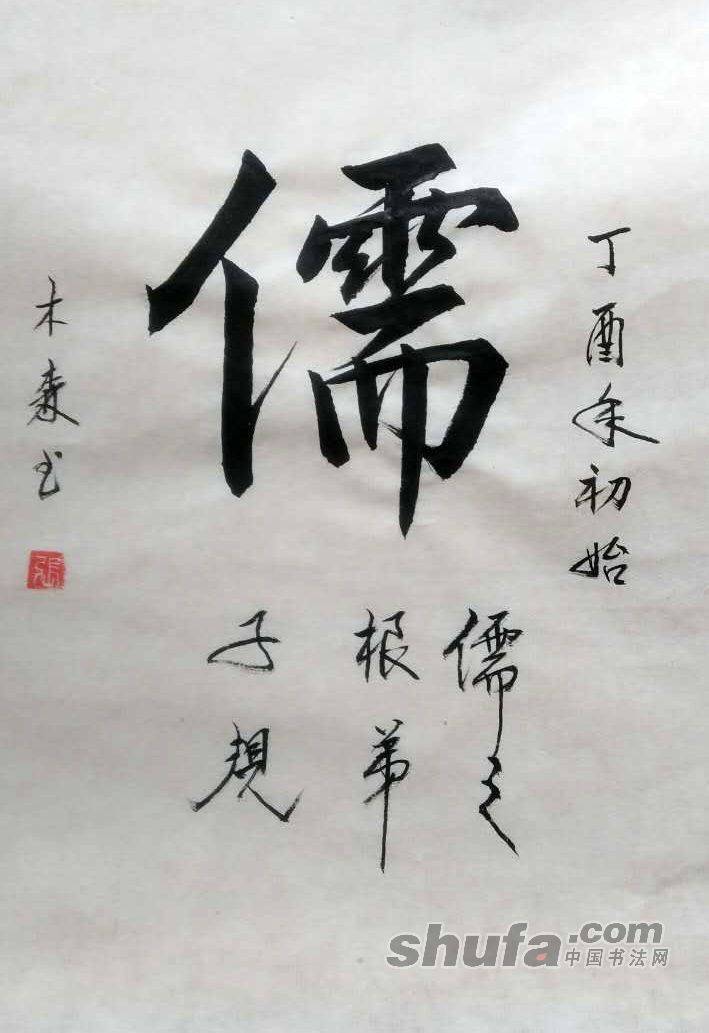 儒
丁酉年初始
儒之
根弟
子規
木森书
張
shufa.com
中国书法网